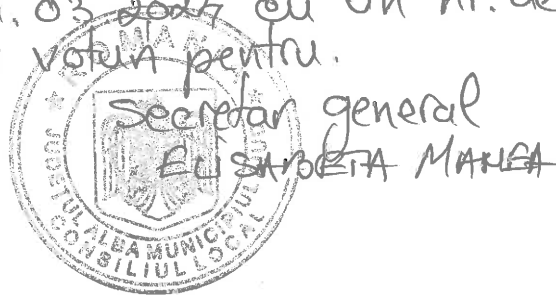 .03.2024 cu un nr. de
voturi pentru.
Secretar general
ELISABETA MANEA
ROMANIA
JUDEȚUL ALBA MUNICIPIUL
CONSILIUL LOCAL